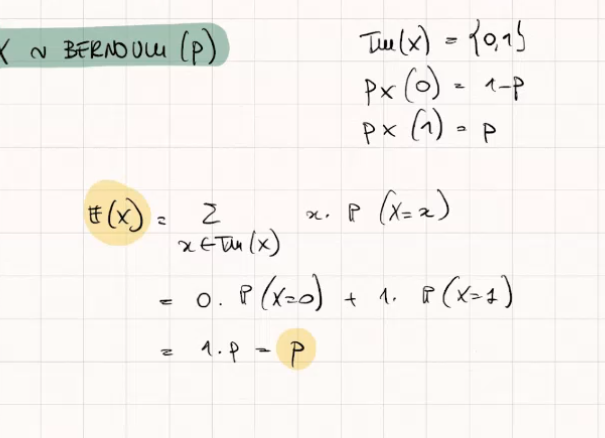 X ~ BERNOULLI (p)
Im(X) = {0,1}
pX (0) = 1-p
pX (1) = p
𝔼(X) = Σ x. ℙ (X=x)
x∈Im(X)
= 0. ℙ(X=0) + 1. ℙ(X=1)
= 1.p = p